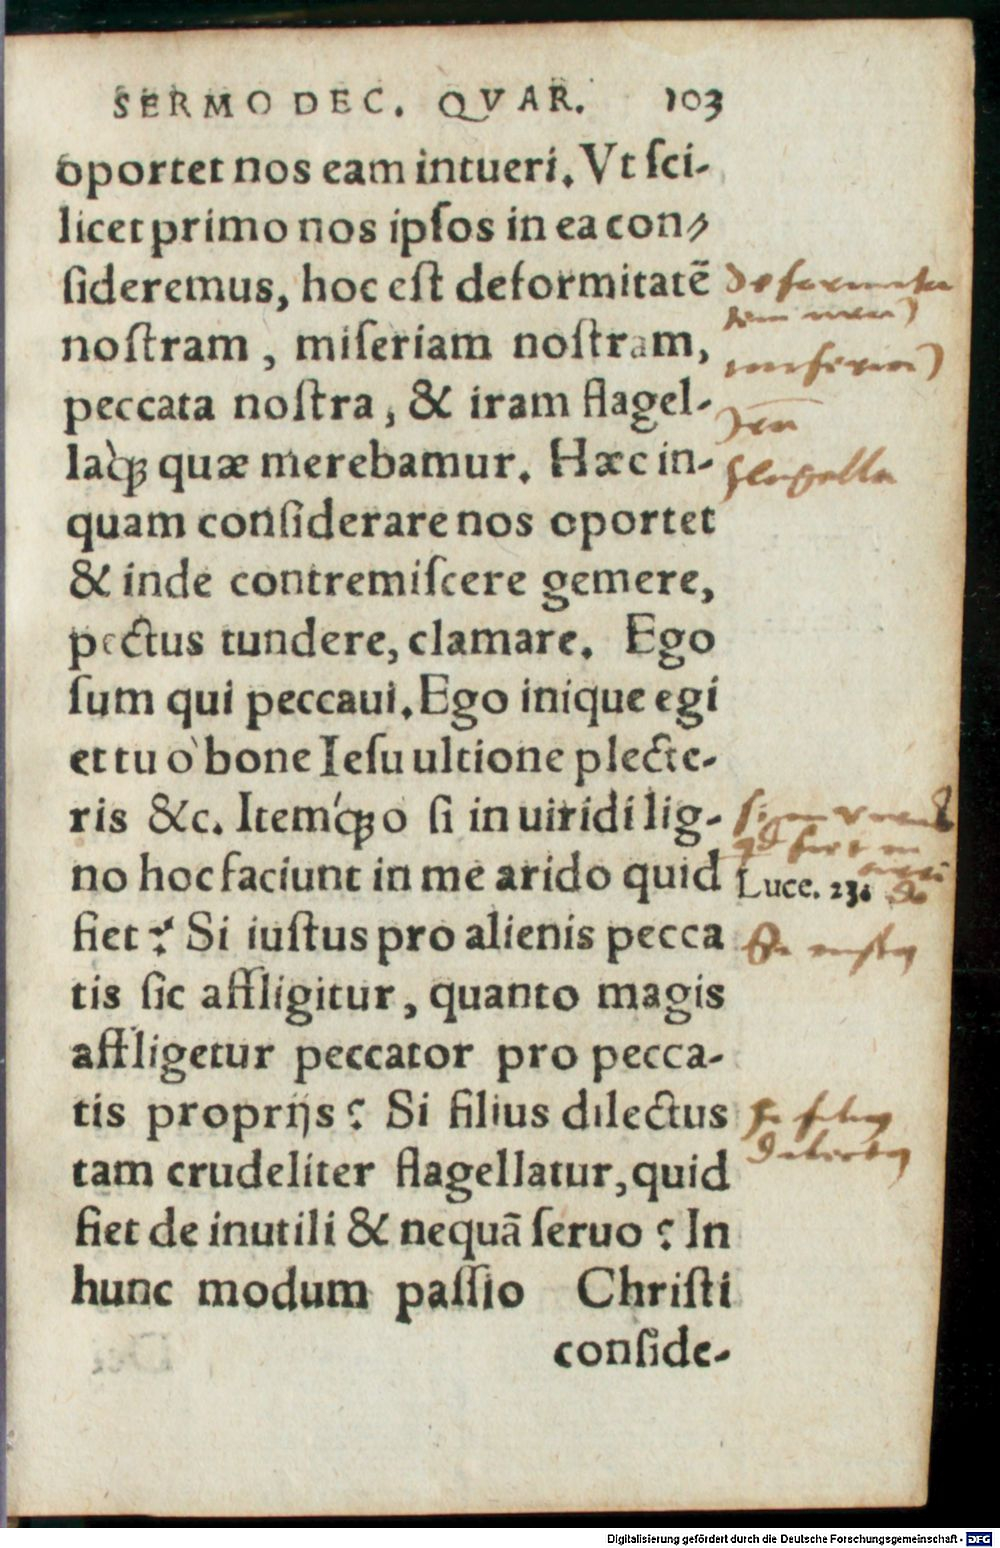 SERMO DEC. QVAR. 103
oportet nos eam intueri. Vt ſci-
licet primo nos ipſos in ea con-
ſideremus, hoc eſt deformitatẽ
noſtram, miſeriam noſtram,
peccata noſtra, & iram flagel-
laq́ꝫ quæ merebamur. Hæc in-
quam conſiderare nos oportet
& inde contremiſcere gemere,
pectus tundere, clamare. Ego
ſum qui peccaui. Ego inique egi
et tu o bone Ieſu ultione plecte-
ris &c. Itemq́ꝫ o ſi in uiridi lig-
no hoc faciunt in me arido quid
fiet? Si iuſtus pro alienis pecca
tis ſic affligitur, quanto magis
affligetur peccator pro pecca-
tis proprijs? Si filius dilectus
tam crudeliter flagellatur, quid
fiet de inutili & nequã ſeruo? In
hunc modum paſſio Chriſti
conſide-
flagella
Luce. 23.
Si iustus
Si filius
dilectus
Digitalisierung gefördert durch die Deutsche Forschungsgemeinschaft - DFG